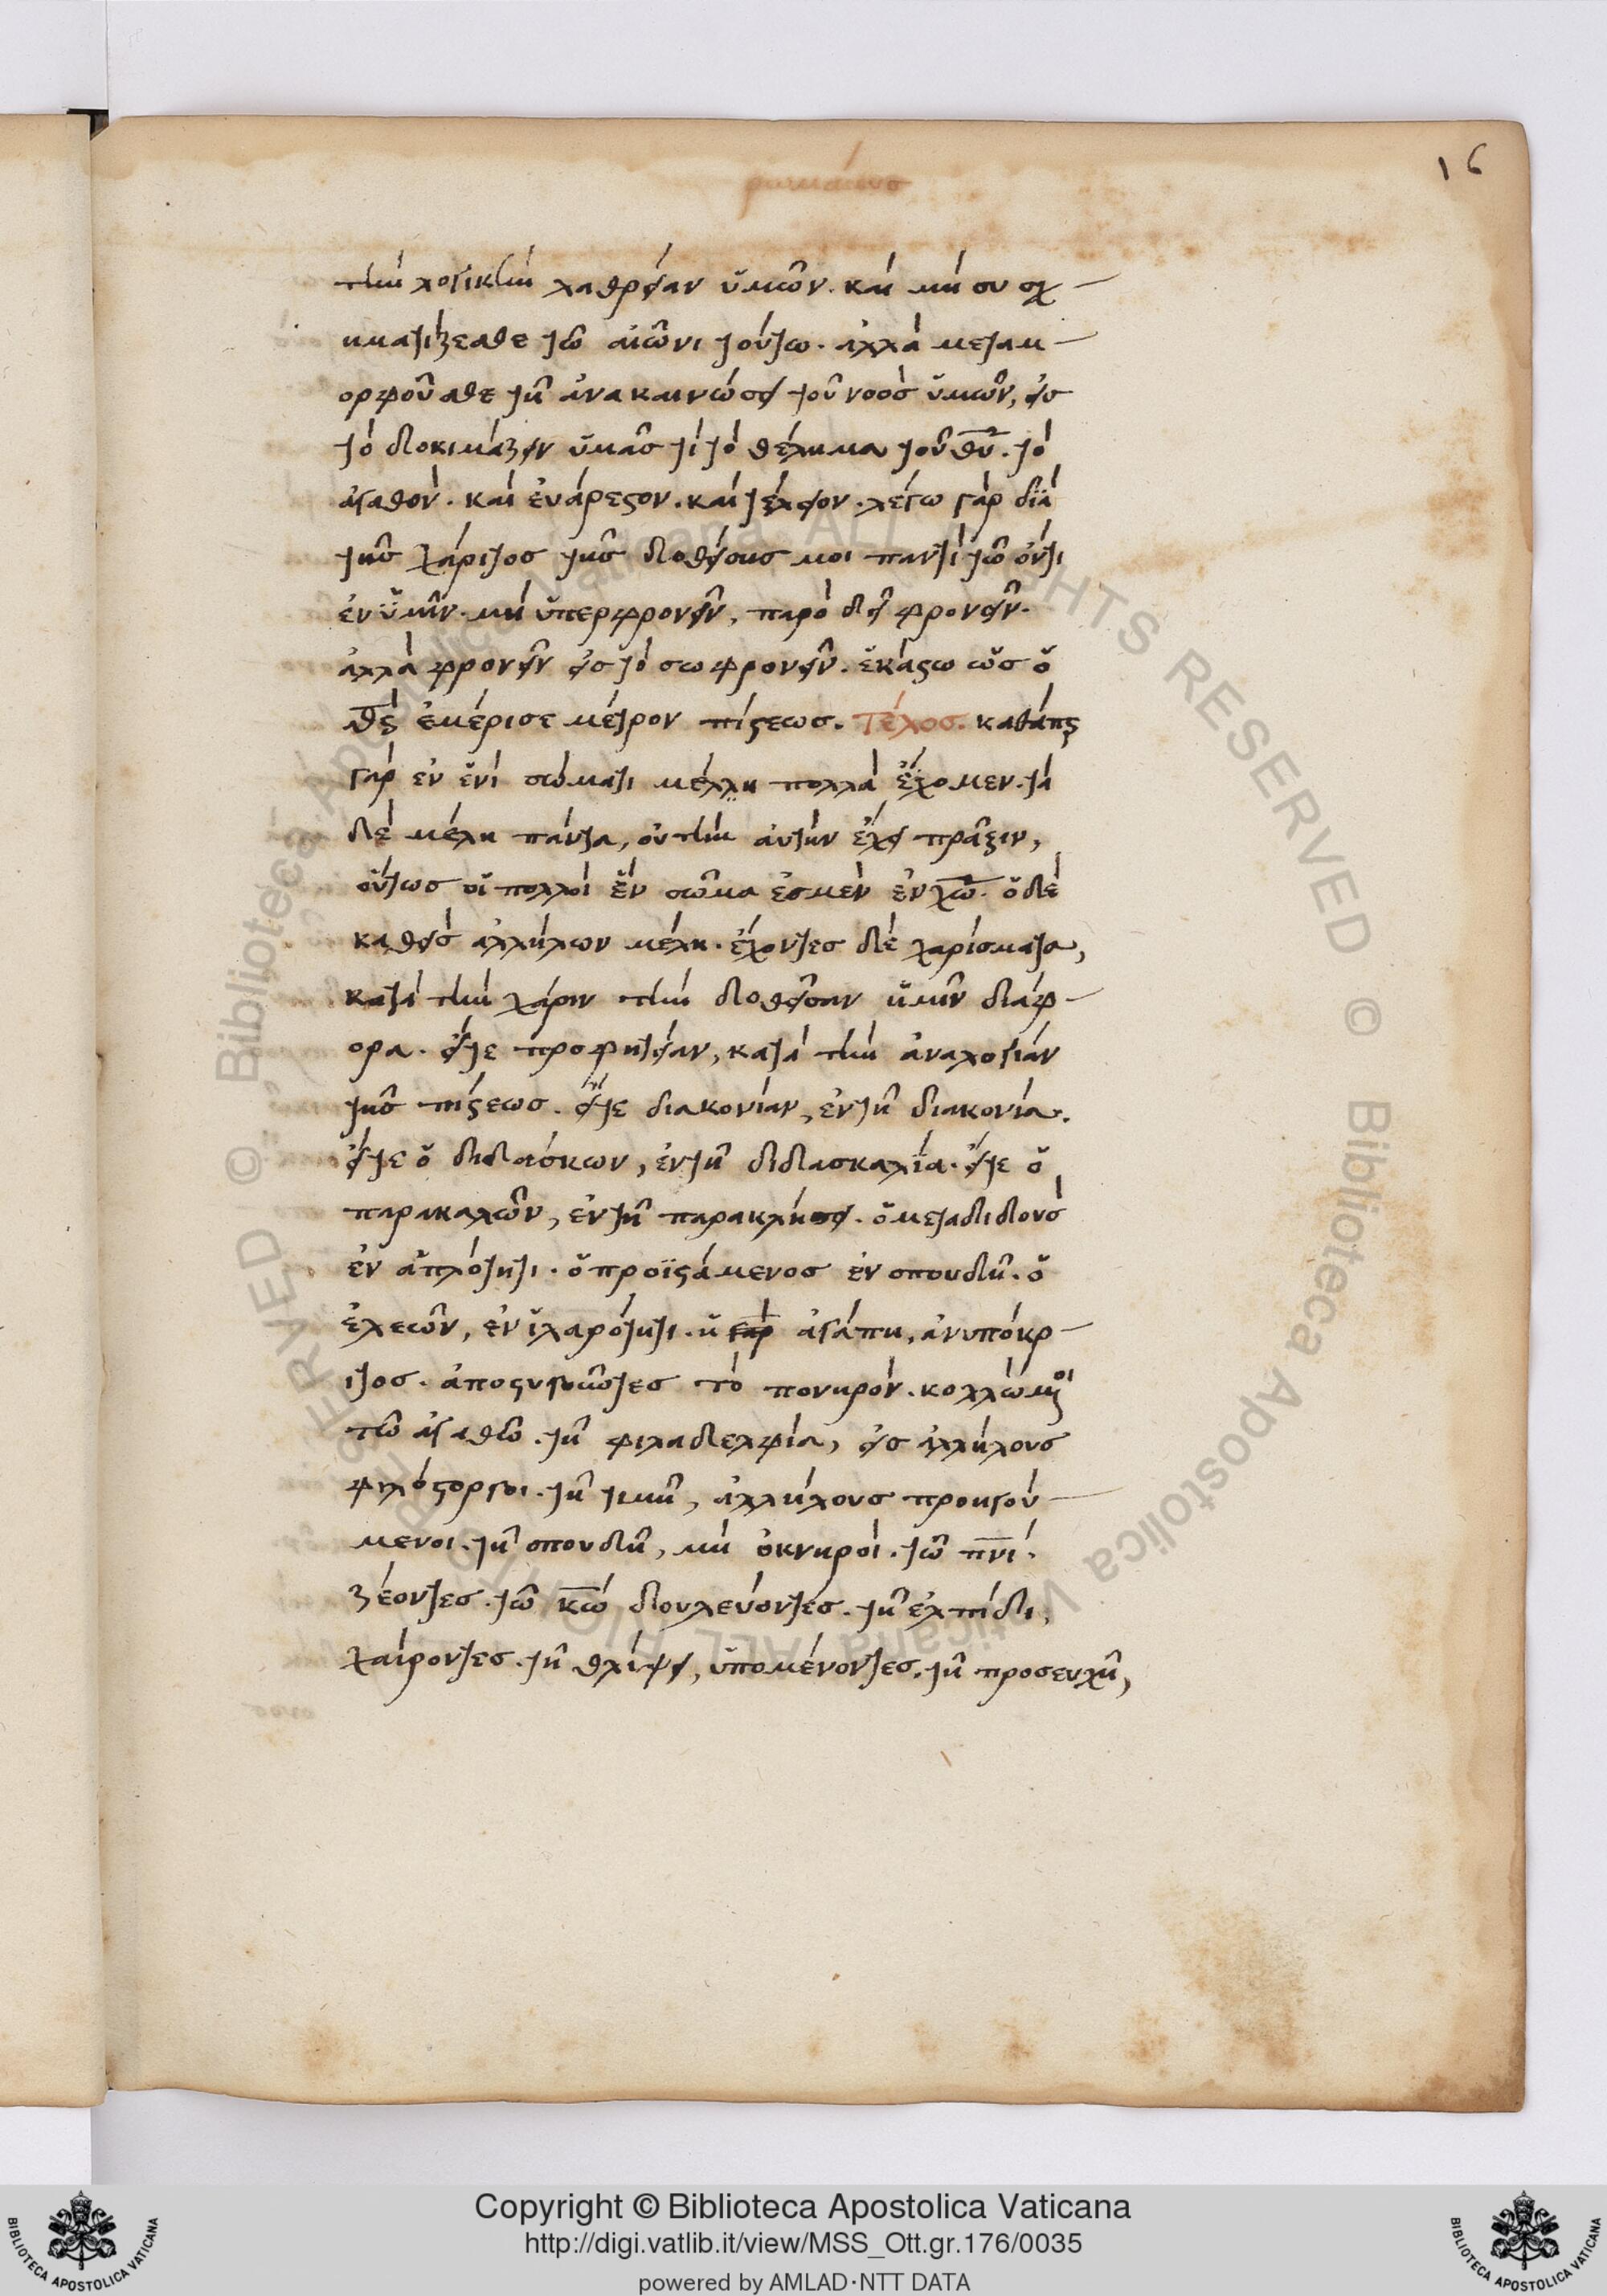 16
ρωμαίους
τὴν λογικὴν λατρείαν ὑμῶν. καὶ μὴ συσχ
ηματίζεσθε τῶ αἰῶνι τούτω. ἀλλὰ μεταμ
ορφοῦσθε τῆ ἀνακαινώσει τοῦ νοὸς ὑμῶν, εἰς
τὸ δοκιμάζειν ὑμᾶς τί τὸ θέλημα τοῦ θῦ. τὸ
ἀγαθὸν. καὶ ἐυάρεστον. καὶ τέλειον. λέγω γὰρ διὰ
τῆς χάριτος τῆς δοθείσης μοι παντὶ τῶ ὄντι
ἐν ὑμῖν. μὴ ὑπερφρονεῖν, παρὸ δεῖ φρονεῖν.
ἀλλὰ φρονεῖν εἰς τὸ σωφρονεῖν. ἑκάστω ὡς ὁ
θς ἐμέρισε μέτρον πίστεως. Τέλος. καθάπερ
γὰρ ἐν ἑνὶ σώματι μέλλη πολλὰ ἔχομεν. τὰ
δὲ μέλη πάντα, οὐ τὴν ἀυτὴν ἔχει πρᾶξιν,
οὕτως οἱ πολλοὶ ἓν σῶμα ἐσμὲν ἐν χῶ. ὁ δὲ
καθεὶς ἀλλήλων μέλη. ἔχοντες δὲ χαρίσματα,
κατὰ τὴν χάριν τὴν δοθεῖσαν ὑμῖν διάφ
ορα. εἴτε προφητείαν, κατὰ τὴν ἀναλογίαν
τῆς πίστεως. εἴτε διακονίαν, ἐν τῆ διακονία.
εἴτε ὁ διδάσκων, ἐν τῆ διδασκαλία. εἴτε ὁ
παρακαλῶν, ἐν τῆ παρακλήσει. ὁ μεταδιδοὺς
ἐν ἁπλότητι. ὁ προϊστάμενος ἐν σπουδῆ. ὁ
ἐλεῶν, ἐν ἱλαρότητι. ἡ γὰρ ἀγάπη, ἀνυπόκρ
ιτος. ἀποστυγοῦντες τὸ πονηρὸν. κολλώμενοι
τῶ ἀγαθῶ. τῆ φιλαδελφία, εἰς ἀλλήλους
φιλόστοργοι. τῆ τιμῆ, ἀλλήλους προηγού
μενοι. τῆ σπουδῆ, μὴ ὀκνηροὶ. τῶ πνι.
ζέοντες. τῶ κω δουλεύοντες. τῆ ἐλπίδι,
χαίροντες. τῆ θλίψει, ὑπομένοντες. τῆ προσευχῆ,
Copyright © Biblioteca Apostolica Vaticana
http://digi.vatlib.it/view/MSS_Ott.gr.176/0035
powered by AMLAD·NTT DATA